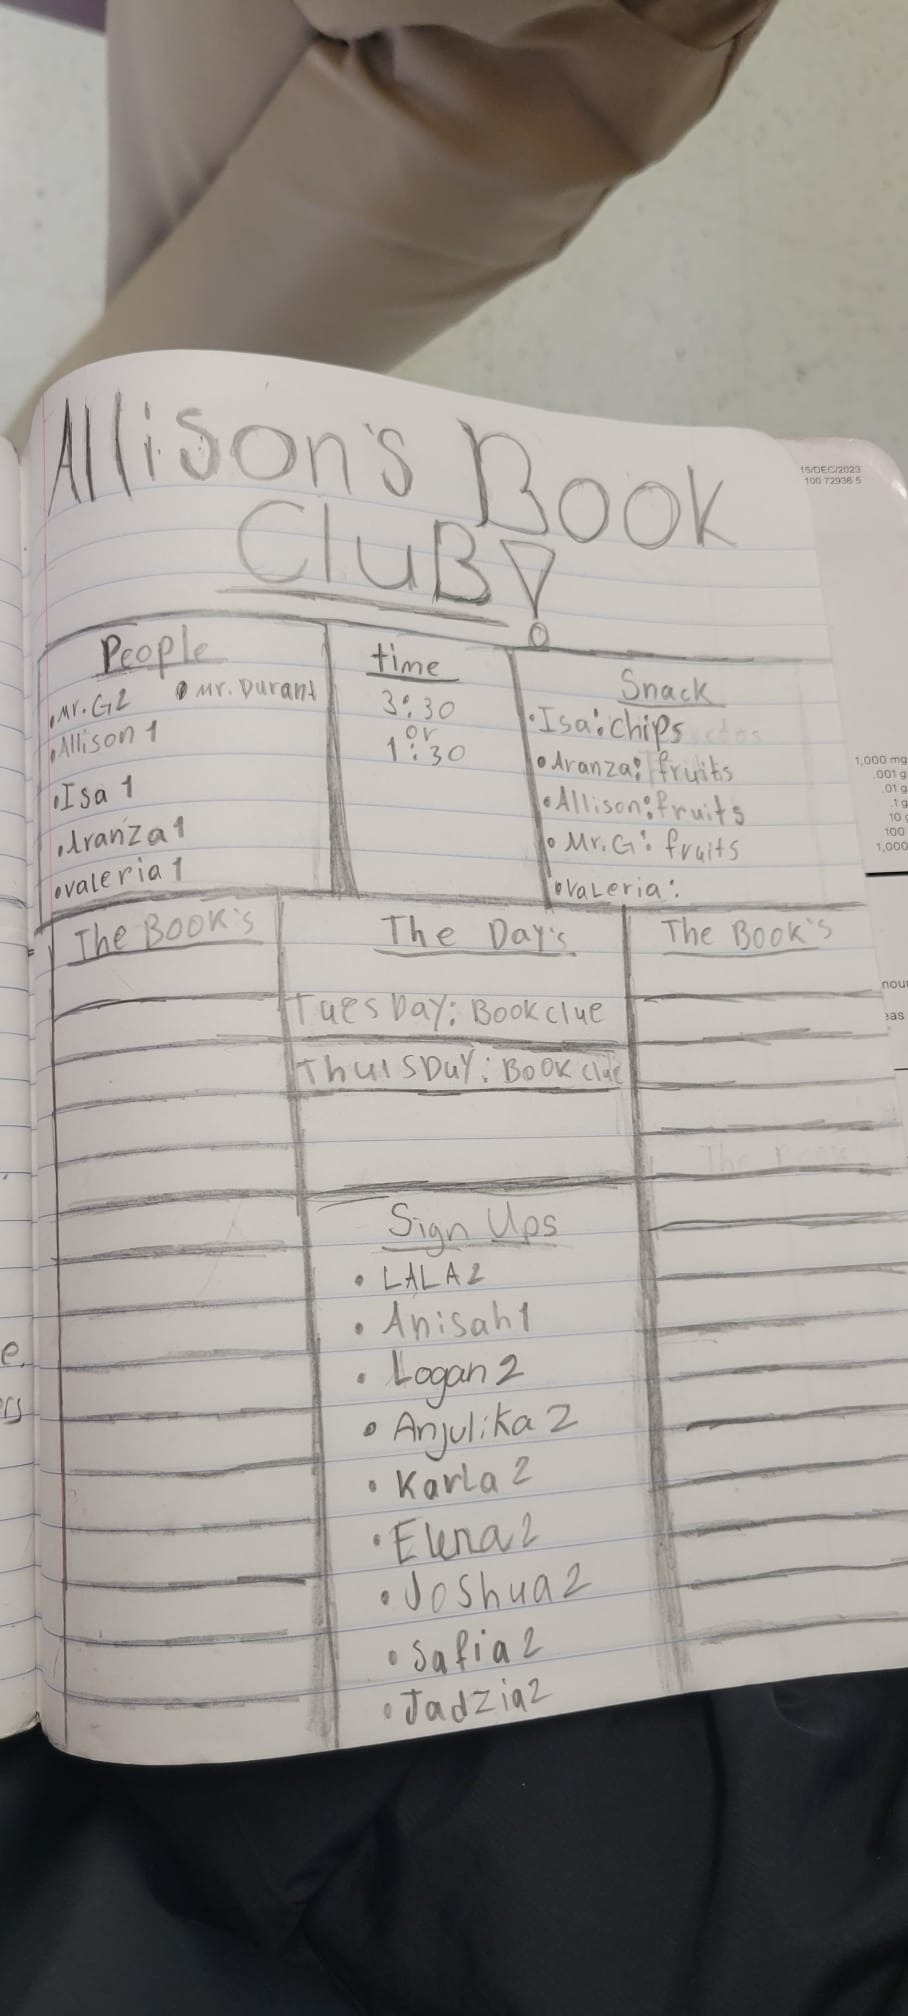 Allison's Book
CluB!
People
• Mr. G2 • Mr. Durant
• Allison 1
• Isa 1
• Aranza 1
• Valeria 1
time
3:30
or
1:30
Snack
• Isa: chips
• Aranza: fruits
• Allison: fruits
• Mr. G: fruits
• Valeria:
The Book's
The Day's
TuesDay: Book clue
ThursDay: Book clue
The Book's
Sign Ups
• LALA 2
• Anisah 1
• Logan 2
• Anjulika 2
• Karla 2
• Elena 2
• Joshua 2
• Safia 2
• Jadzia 2
15/DEC/2023
100 72936 5
1,000 mg
.001 g
.01 g
.1 g
10 g
100
1,000